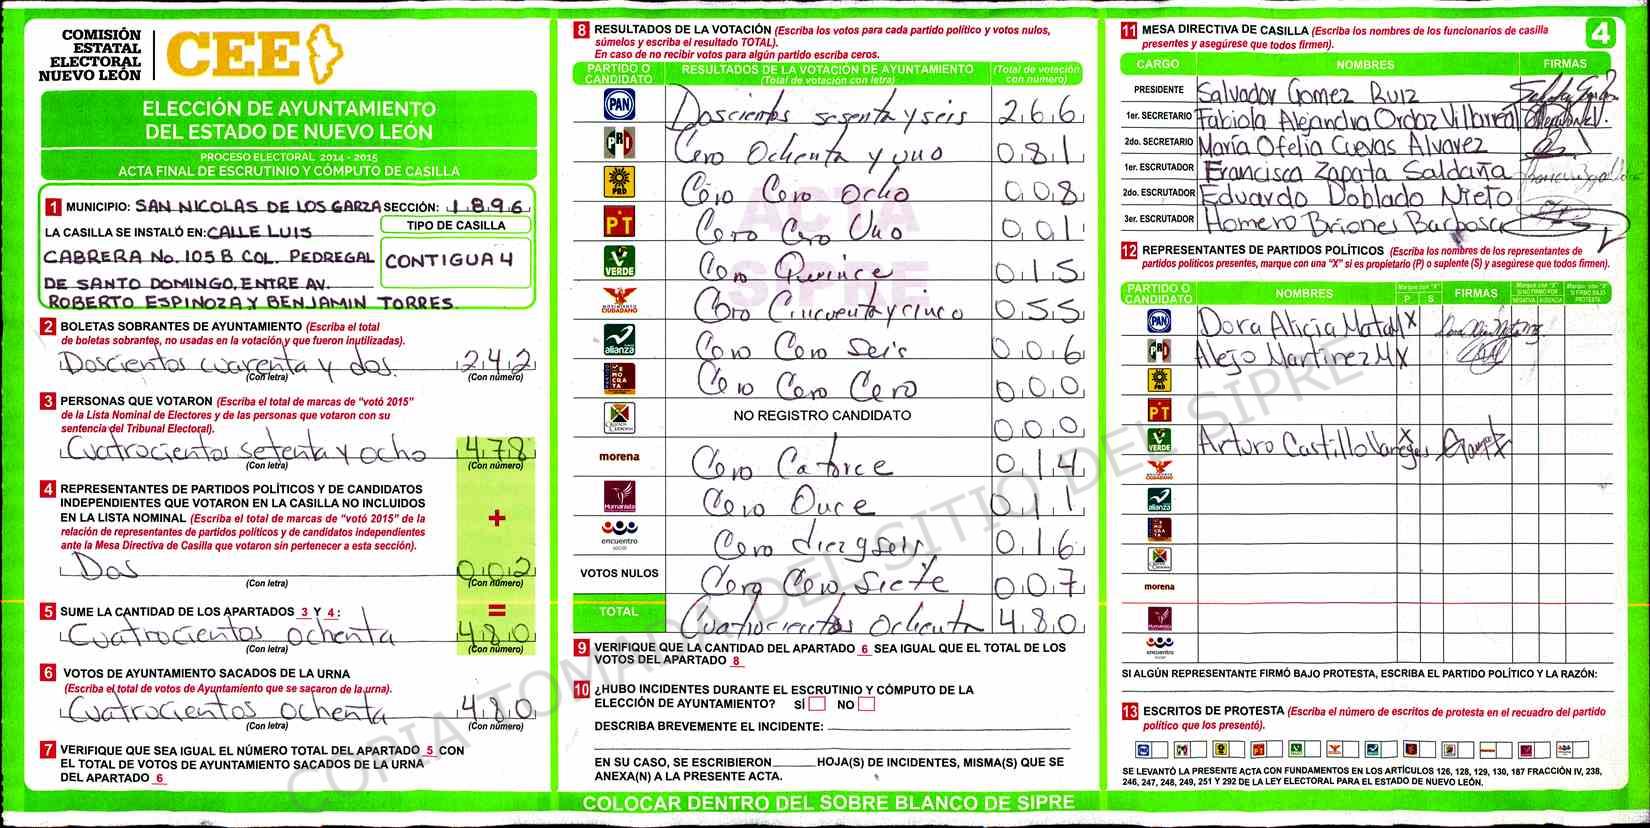 COMISIÓN
ESTATAL
ELECTORAL
NUEVO LEÓN
CEE
ELECCIÓN DE AYUNTAMIENTO
DEL ESTADO DE NUEVO LEÓN
PROCESO ELECTORAL 2014 - 2015
ACTA FINAL DE ESCRUTINIO Y CÓMPUTO DE CASILLA
1 MUNICIPIO: SAN NICOLAS DE LOS GARZA SECCIÓN: 1896
LA CASILLA SE INSTALÓ EN: CALLE LUIS
TIPO DE CASILLA
CABRERA No. 105 B. COL. PEDREGAL
CONTIGUA 4
DE SANTO DOMINGO, ENTRE AV.
ROBERTO ESPINOZA Y BENJAMIN TORRES.
2 BOLETAS SOBRANTES DE AYUNTAMIENTO (Escriba el total
de boletas sobrantes, no usadas en la votación y que fueron inutilizadas).
Doscientos cuarenta y dos. 242
(Con letra) (Con número)
3 PERSONAS QUE VOTARON (Escriba el total de marcas de "votó 2015"
de la Lista Nominal de Electores y de las personas que votaron con su
sentencia del Tribunal Electoral).
Cuatrocientos setenta y ocho 478
(Con letra) (Con número)
4 REPRESENTANTES DE PARTIDOS POLÍTICOS Y DE CANDIDATOS
INDEPENDIENTES QUE VOTARON EN LA CASILLA NO INCLUIDOS
EN LA LISTA NOMINAL (Escriba el total de marcas de "votó 2015" de la
relación de representantes de partidos políticos y de candidatos independientes
ante la Mesa Directiva de Casilla que votaron sin pertenecer a esta sección).
+
Dos 002
(Con letra) (Con número)
5 SUME LA CANTIDAD DE LOS APARTADOS 3 Y 4:
=
Cuatrocientos ochenta 480
(Con letra) (Con número)
6 VOTOS DE AYUNTAMIENTO SACADOS DE LA URNA
(Escriba el total de votos de Ayuntamiento que se sacaron de la urna).
Cuatrocientos ochenta 480
(Con letra) (Con número)
7 VERIFIQUE QUE SEA IGUAL EL NÚMERO TOTAL DEL APARTADO 5 CON
EL TOTAL DE VOTOS DE AYUNTAMIENTO SACADOS DE LA URNA
DEL APARTADO 6
8 RESULTADOS DE LA VOTACIÓN (Escriba los votos para cada partido político y votos nulos,
súmelos y escriba el resultado TOTAL).
En caso de no recibir votos para algún partido escriba ceros.
PARTIDO O CANDIDATO
RESULTADOS DE LA VOTACIÓN DE AYUNTAMIENTO
(Total de votación con letra)
(Total de votación con número)
PAN Doscientos sesenta y seis 266
PRI Cero Ochenta y uno 081
PRD Cero Cero Ocho 008
PT Cero Cero Uno 001
VERDE Cero Quince 015
MOVIMIENTO CIUDADANO Cero Cincuenta y cinco 055
alianza Cero Cero Seis 006
DEMÓCRATA Cero Cero Cero 000
NO REGISTRO CANDIDATO 000
morena Cero Catorce 014
Humanista Cero Once 011
encuentro social Cero diez y seis 016
VOTOS NULOS Cero Cero Siete 007
TOTAL Cuatrocientos Ochenta 480
9 VERIFIQUE QUE LA CANTIDAD DEL APARTADO 6 SEA IGUAL QUE EL TOTAL DE LOS
VOTOS DEL APARTADO 8
10 ¿HUBO INCIDENTES DURANTE EL ESCRUTINIO Y CÓMPUTO DE LA
ELECCIÓN DE AYUNTAMIENTO? SÍ NO
DESCRIBA BREVEMENTE EL INCIDENTE:
EN SU CASO, SE ESCRIBIERON HOJA(S) DE INCIDENTES, MISMA(S) QUE SE
ANEXA(N) A LA PRESENTE ACTA.
COLOCAR DENTRO DEL SOBRE BLANCO DE SIPRE
ACTA
SIPRE
COPIA TOMADA DEL SITIO DEL SIPRE
11 MESA DIRECTIVA DE CASILLA (Escriba los nombres de los funcionarios de casilla
presentes y asegúrese que todos firmen).
4
CARGO NOMBRES FIRMAS
PRESIDENTE Salvador Gomez Ruiz
1er. SECRETARIO Fabiola Alejandra Ordaz Villarreal
2do. SECRETARIO María Ofelia Cuevas Alvarez
1er. ESCRUTADOR Francisca Zapata Saldaña
2do. ESCRUTADOR Eduardo Doblado Nieto
3er. ESCRUTADOR Homero Briones Barbosa
12 REPRESENTANTES DE PARTIDOS POLÍTICOS (Escriba los nombres de los representantes de
partidos políticos presentes, marque con una "X" si es propietario (P) o suplente (S) y asegúrese que todos firmen).
PARTIDO O CANDIDATO
NOMBRES
Marque con "X"
P S
FIRMAS
Marque con "X" SI NO FIRMÓ POR
NEGATIVA AUSENCIA
Marque con "X" SI FIRMÓ BAJO PROTESTA
PAN Dora Alicia Mata M X
PRI Alejo Martinez M X
PRD
PT
VERDE Arturo Castillo X
MOVIMIENTO CIUDADANO
alianza
morena
Humanista
encuentro social
SI ALGÚN REPRESENTANTE FIRMÓ BAJO PROTESTA, ESCRIBA EL PARTIDO POLÍTICO Y LA RAZÓN:
13 ESCRITOS DE PROTESTA (Escriba el número de escritos de protesta en el recuadro del partido
político que los presentó).
SE LEVANTÓ LA PRESENTE ACTA CON FUNDAMENTOS EN LOS ARTÍCULOS 126, 128, 129, 130, 187 FRACCIÓN IV, 238,
246, 247, 248, 249, 251 Y 292 DE LA LEY ELECTORAL PARA EL ESTADO DE NUEVO LEÓN.